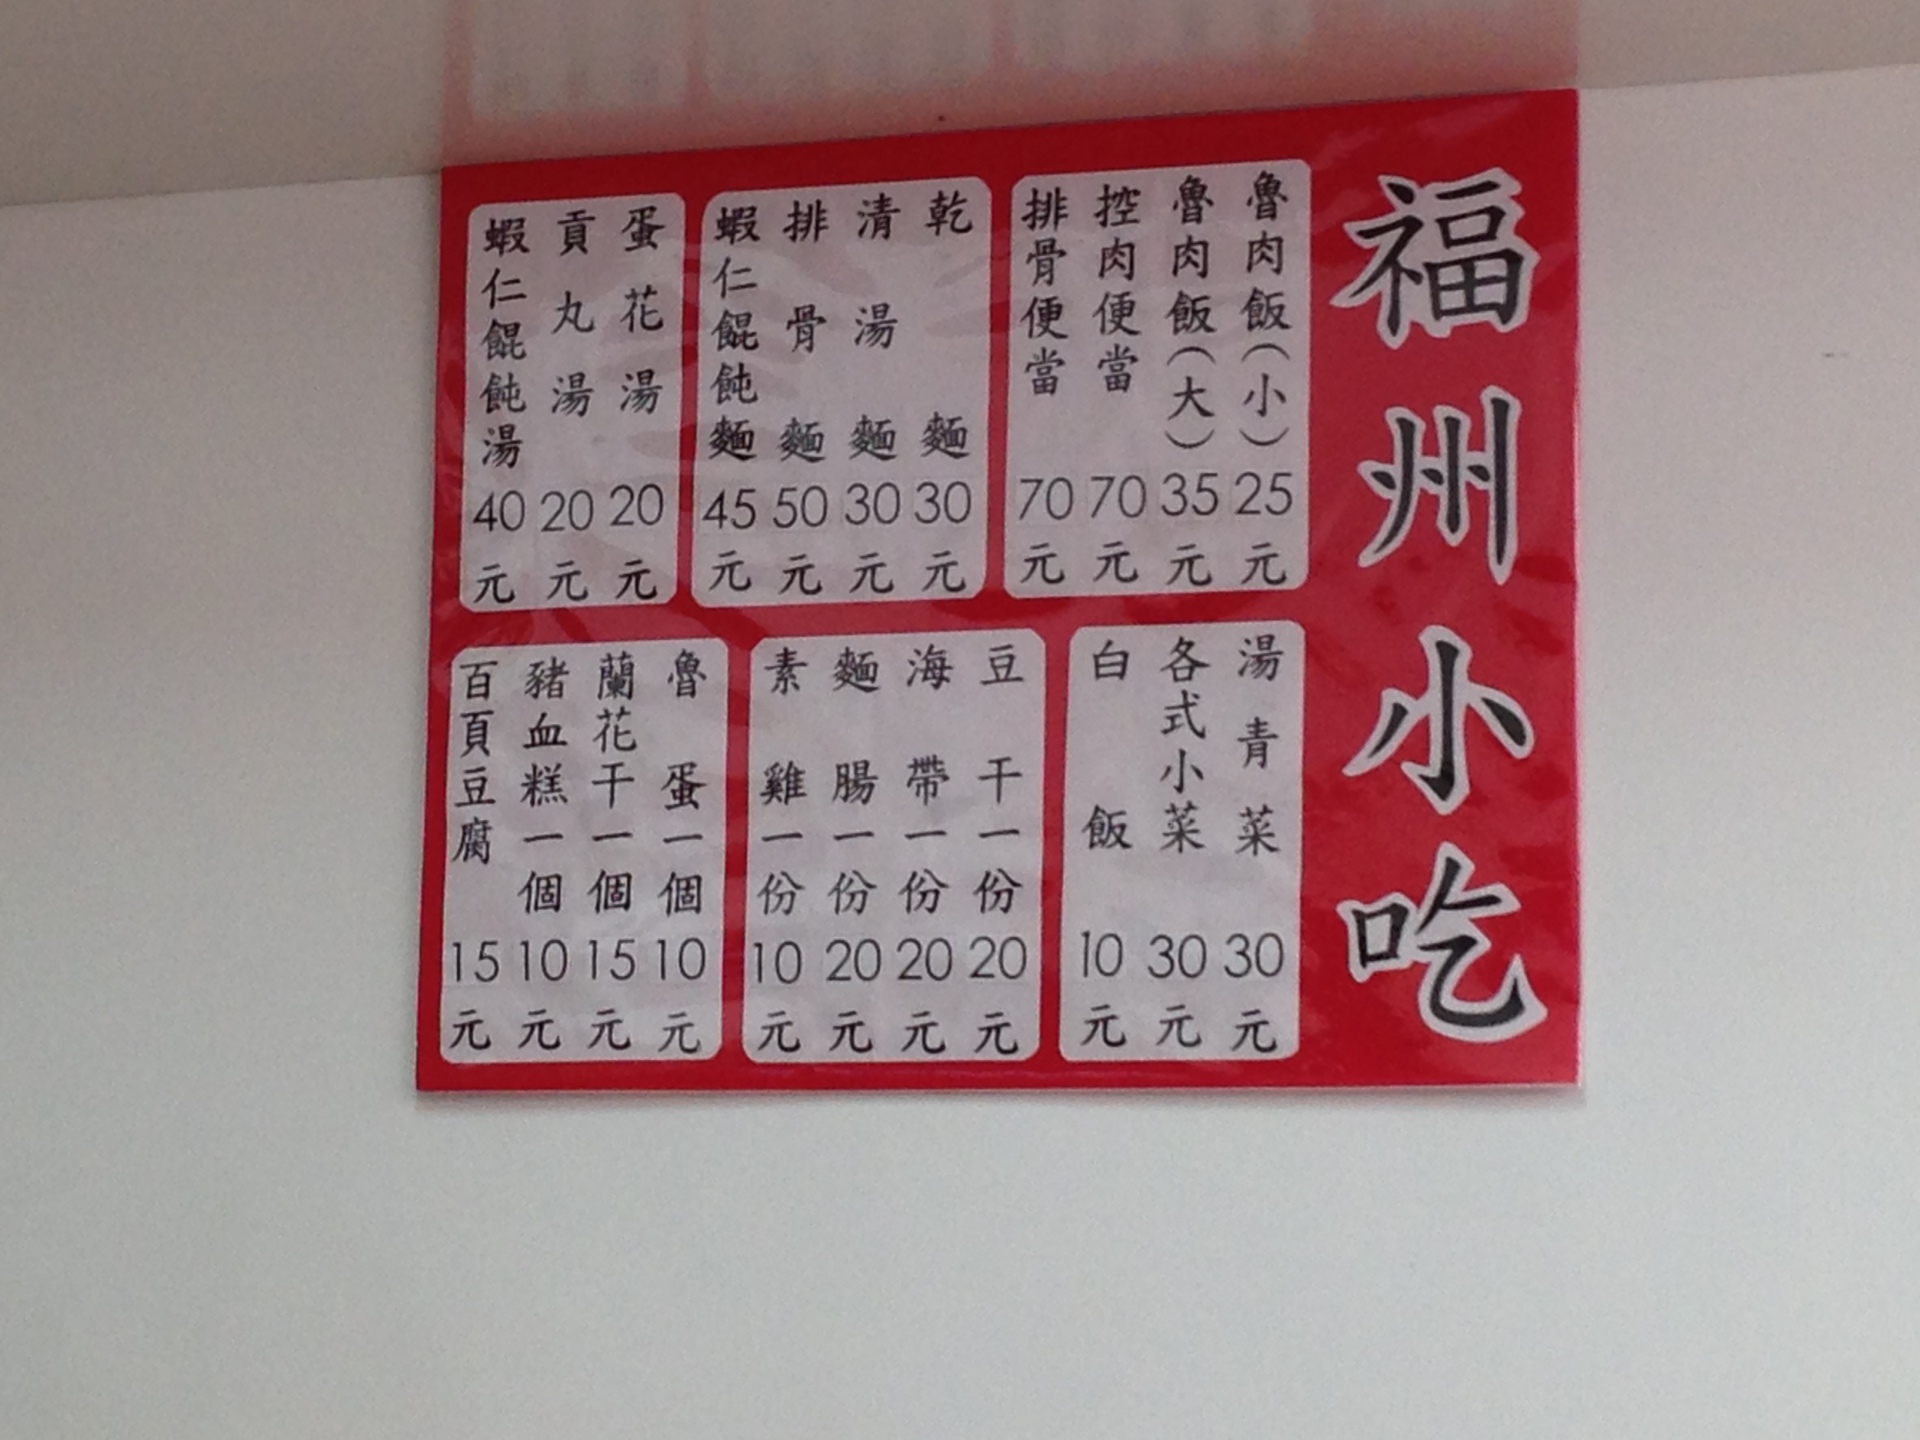 福州小吃
魯肉飯(小)25元
魯肉飯(大)35元
控肉便當70元
排骨便當70元
乾麵30元
清湯麵30元
排骨麵50元
蝦仁餛飩麵45元
蛋花湯20元
貢丸湯20元
蝦仁餛飩湯40元
湯青菜30元
各式小菜30元
白飯10元
豆干一份20元
海帶一份20元
麵腸一份20元
素雞一份10元
魯蛋一個10元
蘭花干一個15元
豬血糕一個10元
百頁豆腐15元